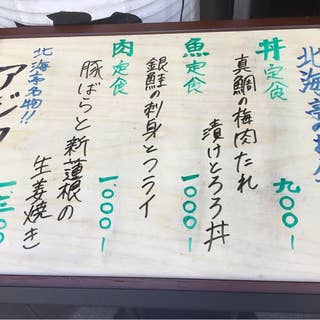 北海亭の
丼定食 九〇〇-
真鯛の梅肉たれ
漬けとろろ丼
魚定食 一、〇〇〇-
銀鮭の刺身とフライ
肉定食 一、〇〇〇-
豚ばらと新蓮根の
生姜焼き
北海亭名物!!
アジフ